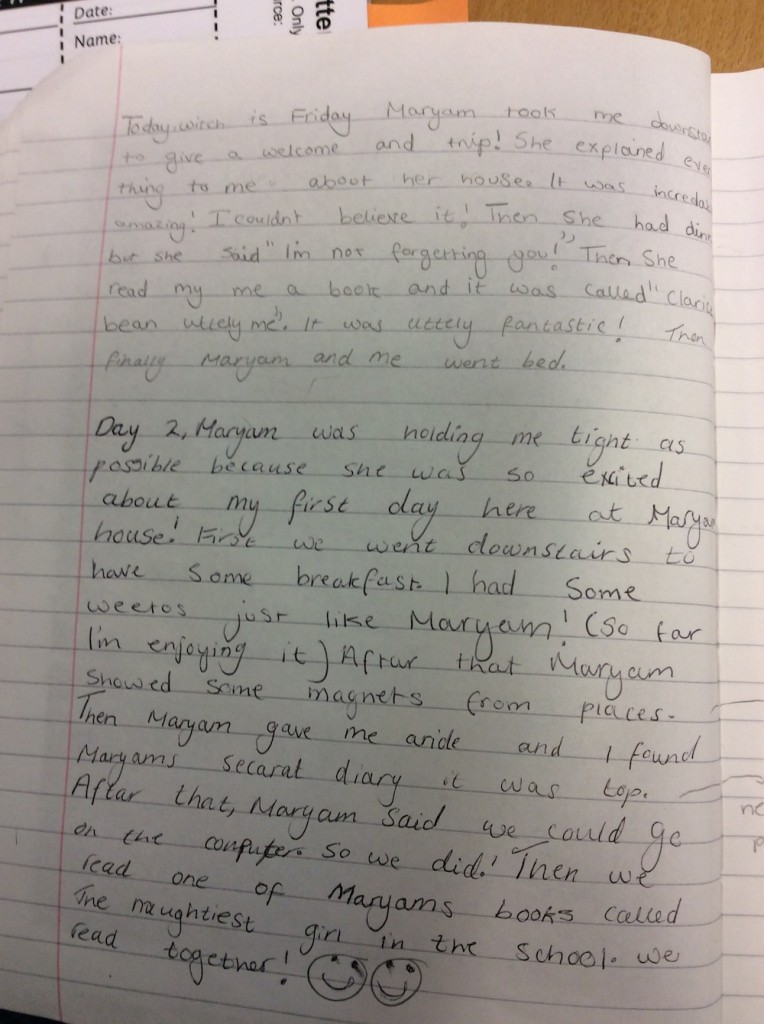 Date:
Name:
tte
Only
rce:
Today. witch is Friday Maryam took me downstai
to give a welcome and trip! She explained ever
thing to me about her house. It was incredab
amazing! I couldnt believe it! Then she had dinn
but she said" I'm not forgetting you!" Then She
read my me a book and it was called" Claric
bean uttely me". It was uttely fantastic! Then
finally Maryam and me went bed.
Day 2, Maryam was holding me tight as
possible because she was so exited
about my first day here at Marya
house! First we went downstairs to
have some breakfast. I had Some
weetos just like Maryam! (So far
I'm enjoying it) Aftar that Maryam
showed some magnets from places.
Then Maryam gave me aride and I found
Maryams secarat diary it was top.
Aftar that, Maryam said we could go
on the computer. So we did! Then we
read one of Maryams books called
The naughtiest girl in the school. we
read together!